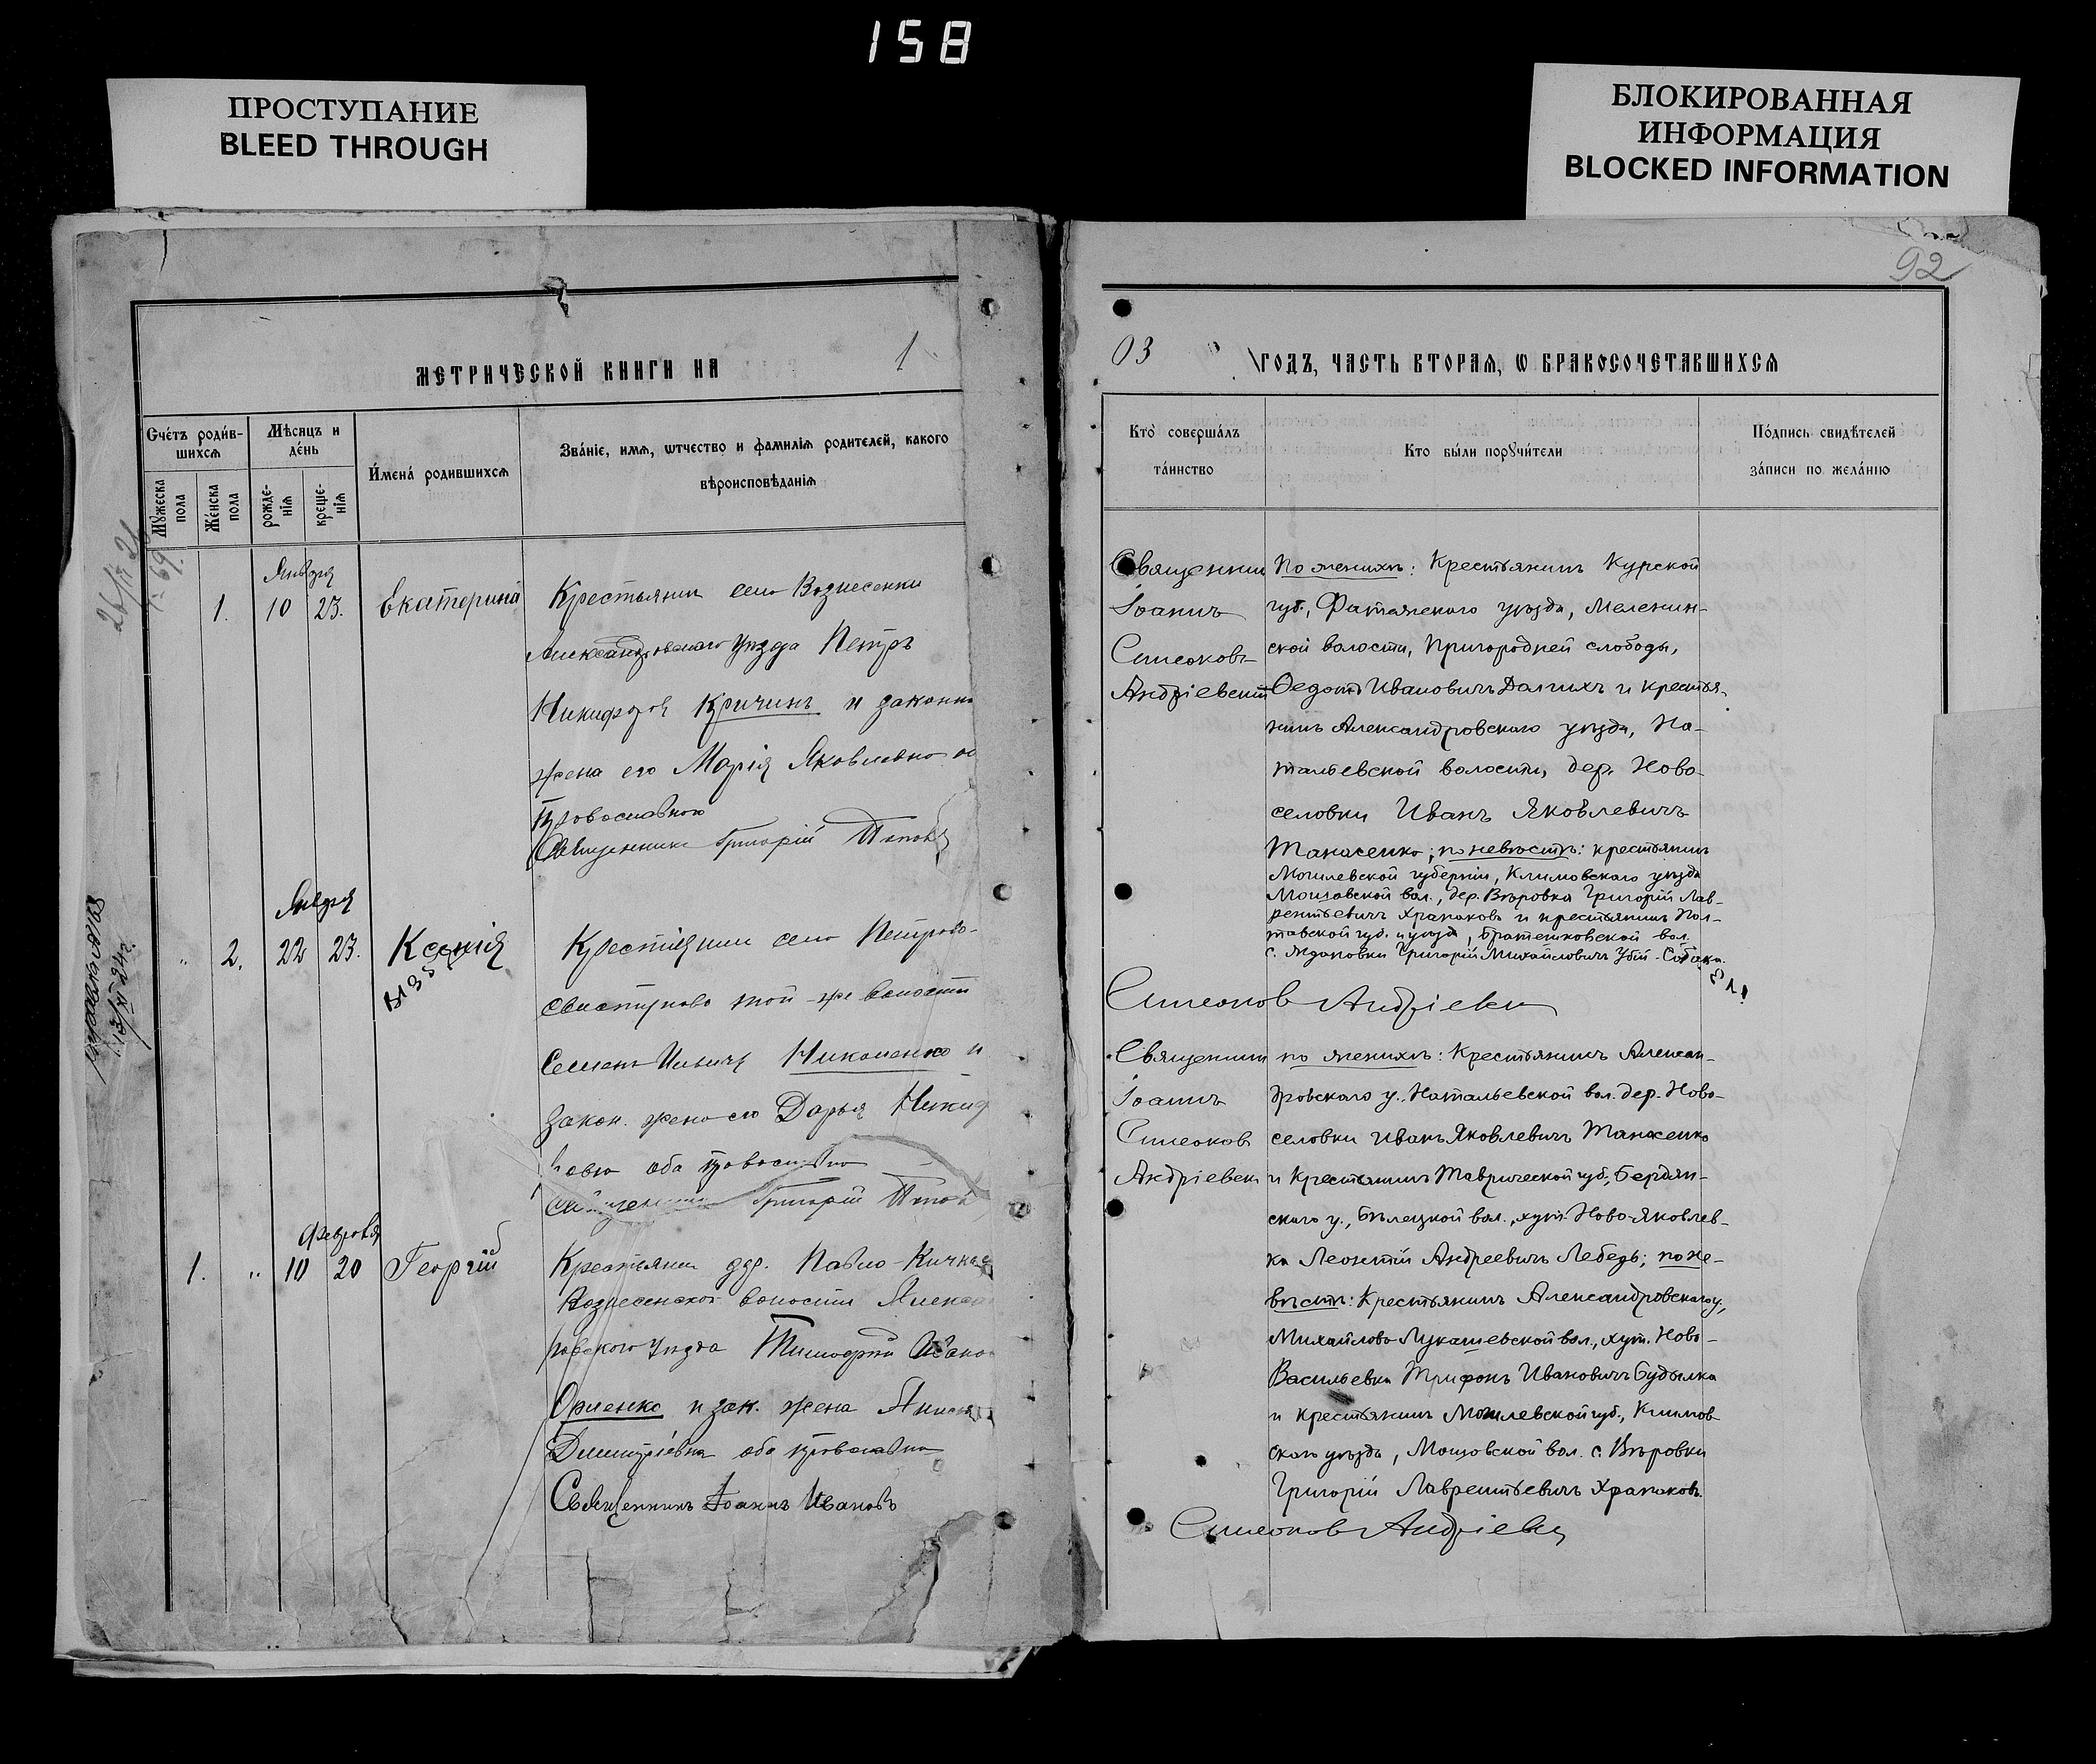 158
ПРОСТУПАНИЕ
BLEED THROUGH
БЛОКИРОВАННАЯ
ИНФОРМАЦИЯ
BLOCKED INFORMATION
МЕТРИЧЕСКОЙ КНИГИ НА 1
Счéтъ роди́в-
шихсѧ
Мѣсѧцъ и
дéнь
Мꙋжеска
пола
Жéнска
пола
рожде-
нїѧ
креще-
нїѧ
И́мена̀ родившихсѧ
Зва́нїе, имѧ, ѿтчество и фамилїѧ родителей, какого
вѣроисповѣданїѧ
Января
1. 10 23. Екатерина
Крестьянин село Вознесенки
Александровского уѣзда Петръ
Никифоров Кричинъ и законна
жена его Марія Яковлевна об
православною
Священникъ Григорій Попов
Января
2. 22 23. Ксенія
Крестіянин село Петрово-
Свистуново той-же волости
Семенъ Ильичъ Николенко и
закон. жена его Дарья Никиф
ова оба православно
Григорій Попов
Февраля
1. " 10 20 Георгій
Крестьянин дер. Павло-Кичкас
Вознесенской волости Алекса
ровского уѣзда Тимофей
и зак. жена
Димитріевна оба православно
Священникъ Іоаннъ Ивановъ
92
03 ГОДЪ, ЧАСТЬ ВТОРАѦ, Ѡ БРАКОСОЧЕТАВШИХСѦ
Кто̀ соверша́лъ
та́инство
Кто бы́ли порꙋчи́тели
По́дпись свидѣтелей
за́писи по жела́нїю
Священник
Іоаннъ
Симеоновъ
Андріевскій
По женихѣ: Крестьянинъ Курской
губ., Фатежского уѣзда, Меленин-
ской волости, Пригородней слободы,
Федотъ Ивановичъ Долгихъ и крестья-
нинъ Александровскаго уѣзда, На-
тальевской волости, дер. Ново-
селовки Иванъ Яковлевичъ
Танасенко; по невѣстѣ: крестьянинъ
Могилевской губерніи, Климовскаго уѣзда
вол., дер. Вѣровка Григорій Лав-
рентьевичъ Храпаковъ и крестьянинъ Пол-
тавской губ. и уѣзда, Братешковской вол.
с. Ждановки Григорій Михайловичъ Убій-Собака.
Симеонов Андріевск
Священник
Іоаннъ
Симеонов
Андріевск
по женихѣ: Крестьянинъ Алексан-
дровскаго у. Натальевской вол. дер. Ново-
селовки Иванъ Яковлевичъ Танасенко
и Крестьянинъ Таврической губ., Бердян-
скаго у., вол., хут. Ново-Яковлев-
ка Леонтій Андреевичъ Лебедь; по не-
вѣстѣ: Крестьянинъ Александровскаго у.,
Михайлово-Лукашевской вол., хут. Ново-
Васильевка Трифонъ Ивановичъ Будылка
и крестьянинъ Могилевской губ., Климов-
скаго уѣзда, вол. с. Вѣровки
Григорій Лаврентьевичъ Храпаковъ.
Симеонов Андріевск